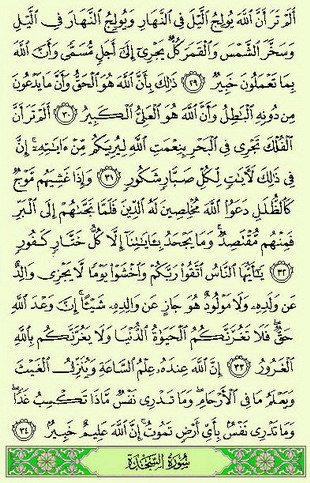 أَلَمْ تَرَ أَنَّ ٱللَّهَ يُولِجُ ٱلَّيْلَ فِى ٱلنَّهَارِ وَيُولِجُ ٱلنَّهَارَ فِى ٱلَّيْلِ
وَسَخَّرَ ٱلشَّمْسَ وَٱلْقَمَرَ كُلٌّ يَجْرِىٓ إِلَىٰٓ أَجَلٍ مُّسَمًّى وَأَنَّ ٱللَّهَ
بِمَا تَعْمَلُونَ خَبِيرٌ ٢٩ ذَٰلِكَ بِأَنَّ ٱللَّهَ هُوَ ٱلْحَقُّ وَأَنَّ مَا يَدْعُونَ
مِن دُونِهِ ٱلْبَٰطِلُ وَأَنَّ ٱللَّهَ هُوَ ٱلْعَلِىُّ ٱلْكَبِيرُ ٣٠ أَلَمْ تَرَ أَنَّ
ٱلْفُلْكَ تَجْرِى فِى ٱلْبَحْرِ بِنِعْمَتِ ٱللَّهِ لِيُرِيَكُم مِّنْ ءَايَٰتِهِۦٓ إِنَّ
فِى ذَٰلِكَ لَءَايَٰتٍ لِّكُلِّ صَبَّارٍ شَكُورٍ ٣١ وَإِذَا غَشِيَهُم مَّوْجٌ
كَٱلظُّلَلِ دَعَوُا۟ ٱللَّهَ مُخْلِصِينَ لَهُ ٱلدِّينَ فَلَمَّا نَجَّىٰهُمْ إِلَى ٱلْبَرِّ
فَمِنْهُم مُّقْتَصِدٌ وَمَا يَجْحَدُ بِـَٔايَٰتِنَآ إِلَّا كُلُّ خَتَّارٍ كَفُورٍ
٣٢ يَٰٓأَيُّهَا ٱلنَّاسُ ٱتَّقُوا۟ رَبَّكُمْ وَٱخْشَوْا۟ يَوْمًا لَّا يَجْزِى وَالِدٌ
عَن وَلَدِهِۦ وَلَا مَوْلُودٌ هُوَ جَازٍ عَن وَالِدِهِۦ شَيْـًٔا إِنَّ وَعْدَ ٱللَّهِ
حَقٌّ فَلَا تَغُرَّنَّكُمُ ٱلْحَيَوٰةُ ٱلدُّنْيَا وَلَا يَغُرَّنَّكُم بِٱللَّهِ
ٱلْغَرُورُ ٣٣ إِنَّ ٱللَّهَ عِندَهُۥ عِلْمُ ٱلسَّاعَةِ وَيُنَزِّلُ ٱلْغَيْثَ
وَيَعْلَمُ مَا فِى ٱلْأَرْحَامِ وَمَا تَدْرِى نَفْسٌ مَّاذَا تَكْسِبُ غَدًا
وَمَا تَدْرِى نَفْسٌۢ بِأَىِّ أَرْضٍ تَمُوتُ إِنَّ ٱللَّهَ عَلِيمٌ خَبِيرٌۢ ٣٤
سُورَةُ السَّجْدَةِ